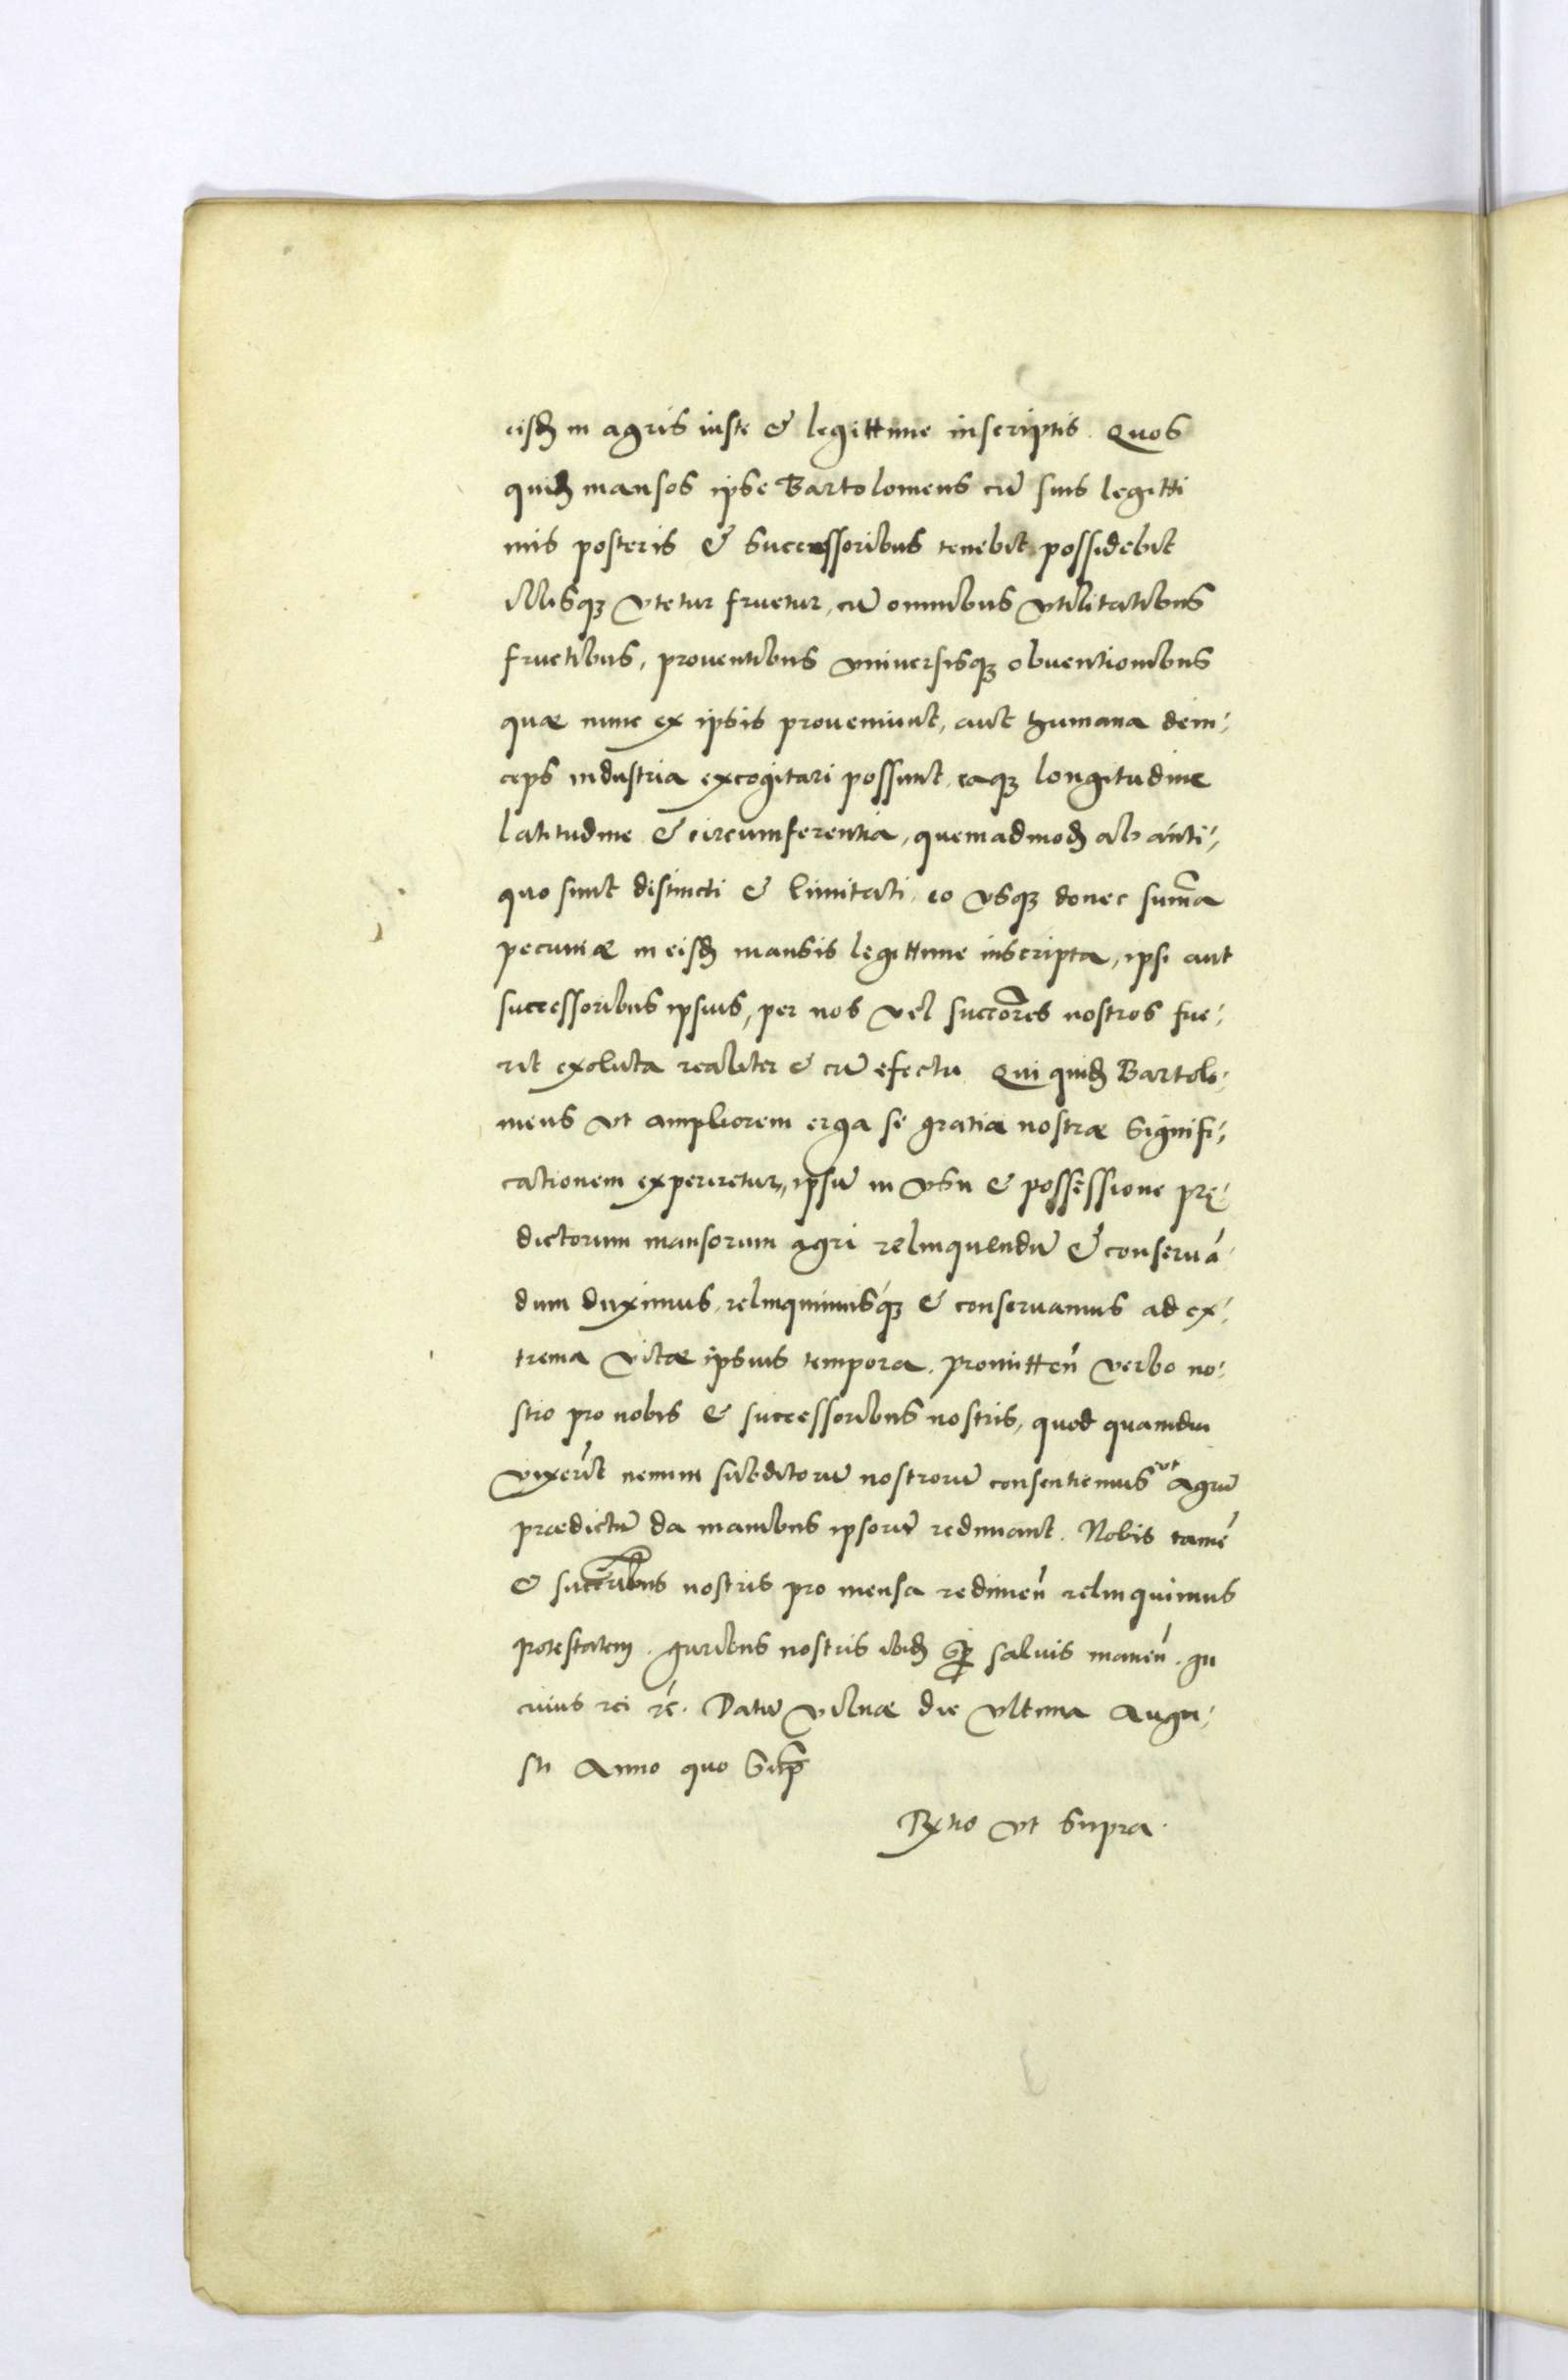 eisđ in agris iuste & legittime inscriptis. Quos
quiđ mansos ipse Bartolomeus cū suis legitti
mis posteris & successoribus tenebit possidebit
illisqꝫ vtetur fruetur, cū omnibus vtilitatibus
fructibus, prouentibus vniuersisqꝫ obuentionibus
quæ nunc ex ipsis proueniunt, aut humana dein-
ceps industria excogitari possunt, eaqꝫ longitudine
latitudine & circumferentia, quemadmođ ab anti-
quo sunt distincti & limitati, eo vsqꝫ donec sum̄a
pecuniæ in eisđ mansis legittime inscripta, ipsi aut
successoribus ipsius, per nos vel succores nostros fue-
rit exoluta realiter & cū efectu Qui quiđ Bartolo-
meus vt ampliorem erga se gratiæ nostræ signifi-
cationem experiretur, ipsū in vsu & possessione prę-
dictorum mansorum agri relinquendū & conseruā-
dum duximus, relinquimusqꝫ & conseruamus ad ex-
trema vitæ ipsius tempora. Promitteñ verbo no-
stro pro nobis & successoribus nostris, quod quamdiu
vixerit nemini subditorū nostrorū consentiemus vt agrū
prædictū da manibus ipsorū redimant. Nobis tamē
& succribus nostris pro mensa redimeñ relinquimus
potestatem. Iuribus nostris ibiđ sꝑ saluis maneñ. In
cuius rei rc̄. Datū Vilnæ die vltima Augu-
sti Anno quo sup̄
Rx̄tio vt supra.